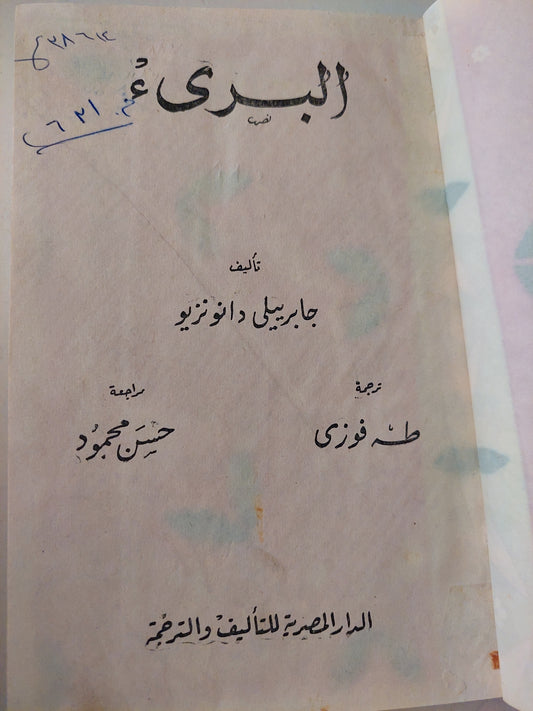 ٣٨٦١٤
البرىء
٦٢١
تأليف
جابرييلى دانونزيو
ترجمة
طه فوزى
مراجعة
حسن محمود
الدار المصرية للتأليف والترجمة